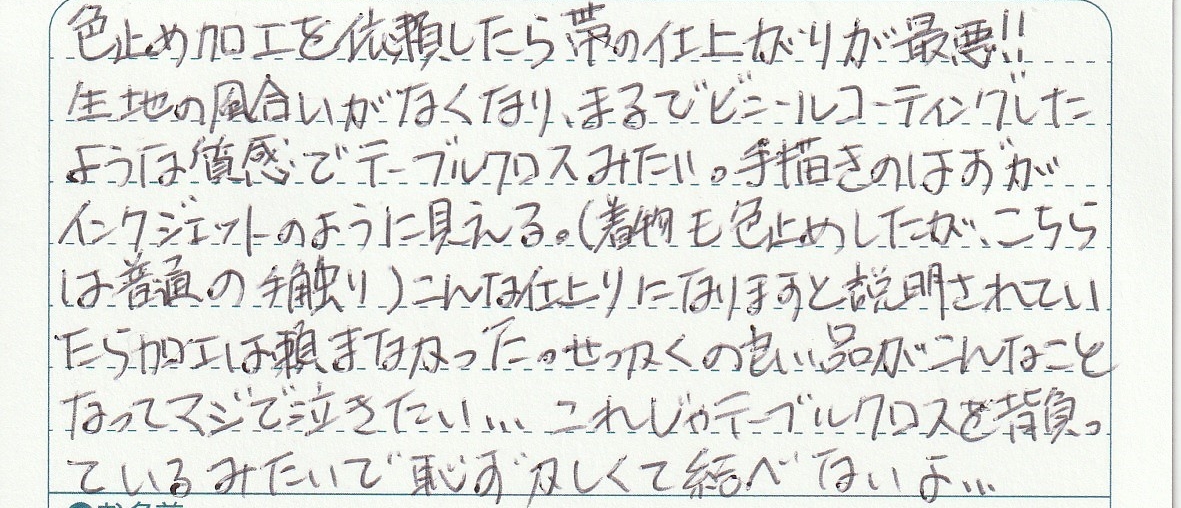 色止め加工を依頼したら帯の仕上がりが最悪!!
生地の風合いがなくなり、まるでビニールコーティングした
ような質感でテーブルクロスみたい。手描きのはずが
インクジェットのように見える。(着物も色止めしたが、こちら
は普通の手触り)こんな仕上りになりますと説明されてい
たら加工は頼まなかった。せっかくの良い品がこんなこと
なってマジで泣きたい… これじゃテーブルクロスを背負っ
ているみたいで恥ずかしくて結べないよ…